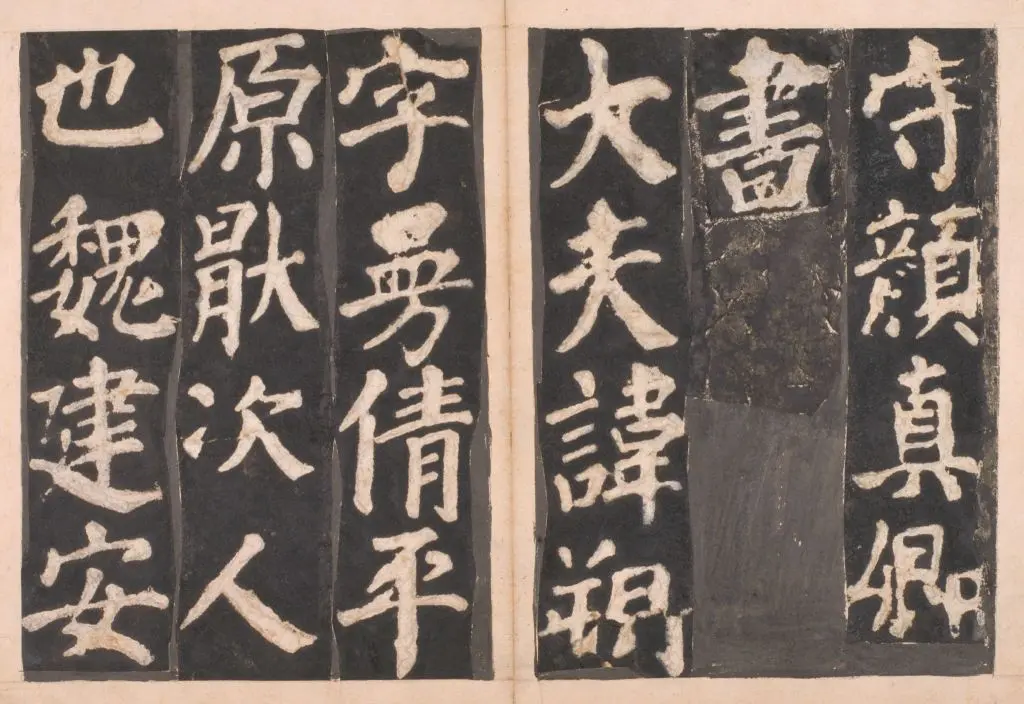 守顏真卿
書
大夫諱朔
字曼倩平
原猒次人
也魏建安